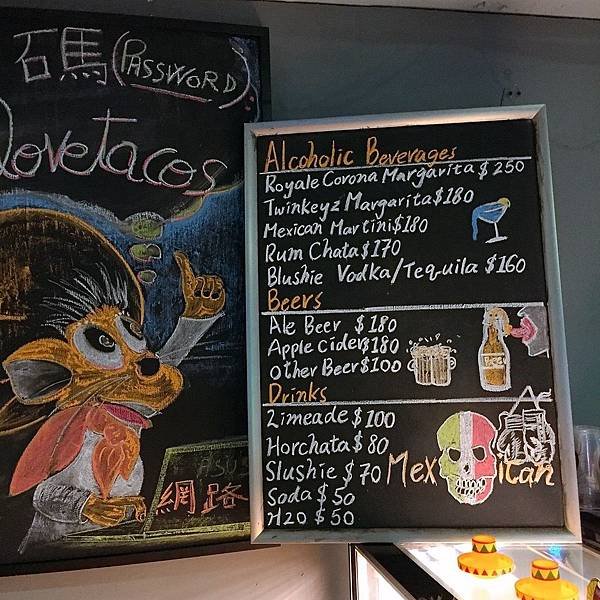 碼(PASSWORD):
lovetacos
ASUS
網路
Alcoholic Beverages
Royale Corona Margarita $250
Twinkeyz Margarita $180
Mexican Martini $180
Rum Chata $170
Blushie Vodka/Tequila $160
Beers
Ale Beer $180
Apple Cider $180
Other Beer $100
Drinks
Limeade $100
Horchata $80
Slushie $70
Soda $50
H2O $50
Mex ican